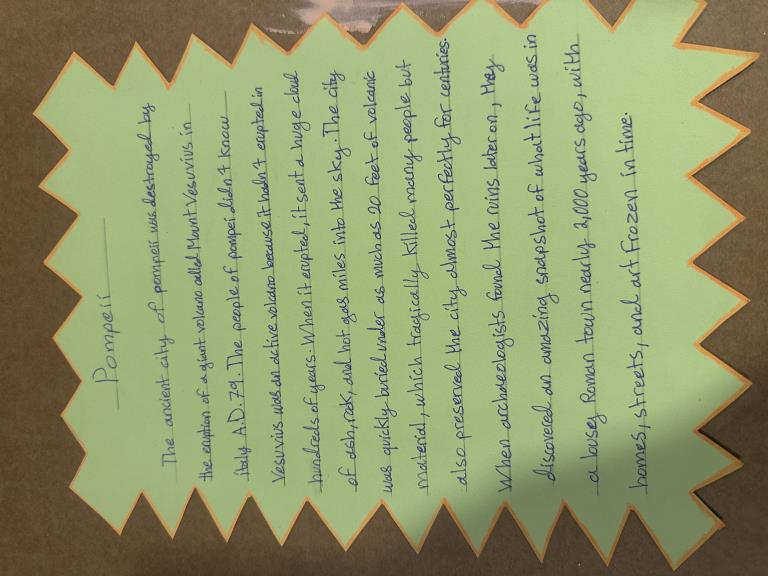 Pompeii
The ancient city of pompeii was destroyed by
the eruption of a giant volcano called Mount Vesuvius in
italy A.D. 79. The people of pompei didn't know
Vesuvius was an active volcano because it hadn't erupted in
hundreds of years. When it erupted, it sent a huge cloud
of ash, rock, and hot gas miles into the sky. The city
was quickly buried under as much as 20 feet of volcanic
material, which tragically killed many people but
also preserved the city almost perfectly for centuries.
When archaeologists found the ruins later on, they
discovered an amazing snapshot of what life was in
a busy Roman town nearly 2,000 years ago, with
homes, streets, and art frozen in time.